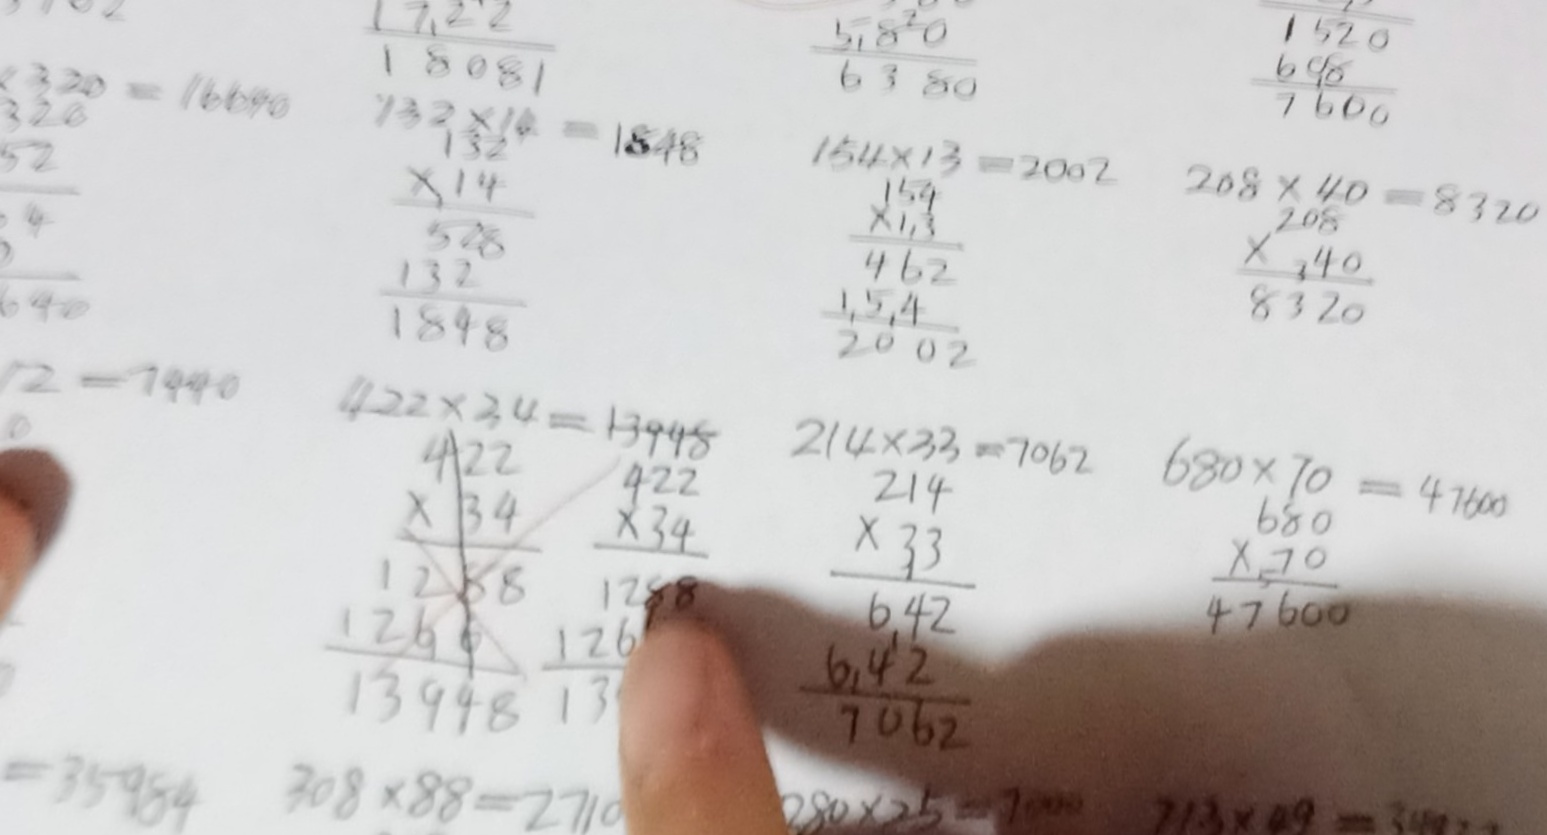 17,22
18081
5,820
6380
1520
698
7600
×320=16640
320
52
4
640
132×14=1848
132
×14
528
132
1848
154×13=2002
154
×1,3
462
1,5,4
2002
208×40=8320
208
×,40
8320
12=7440
0
422×34=13948
422
×34
1288
1266
13948
422
×34
1288
126
13
214×33=7062
214
×33
642
6,42
7062
680×70=47600
680
×70
47600
=35984
308×88=2710
280×25=7000
713×49=